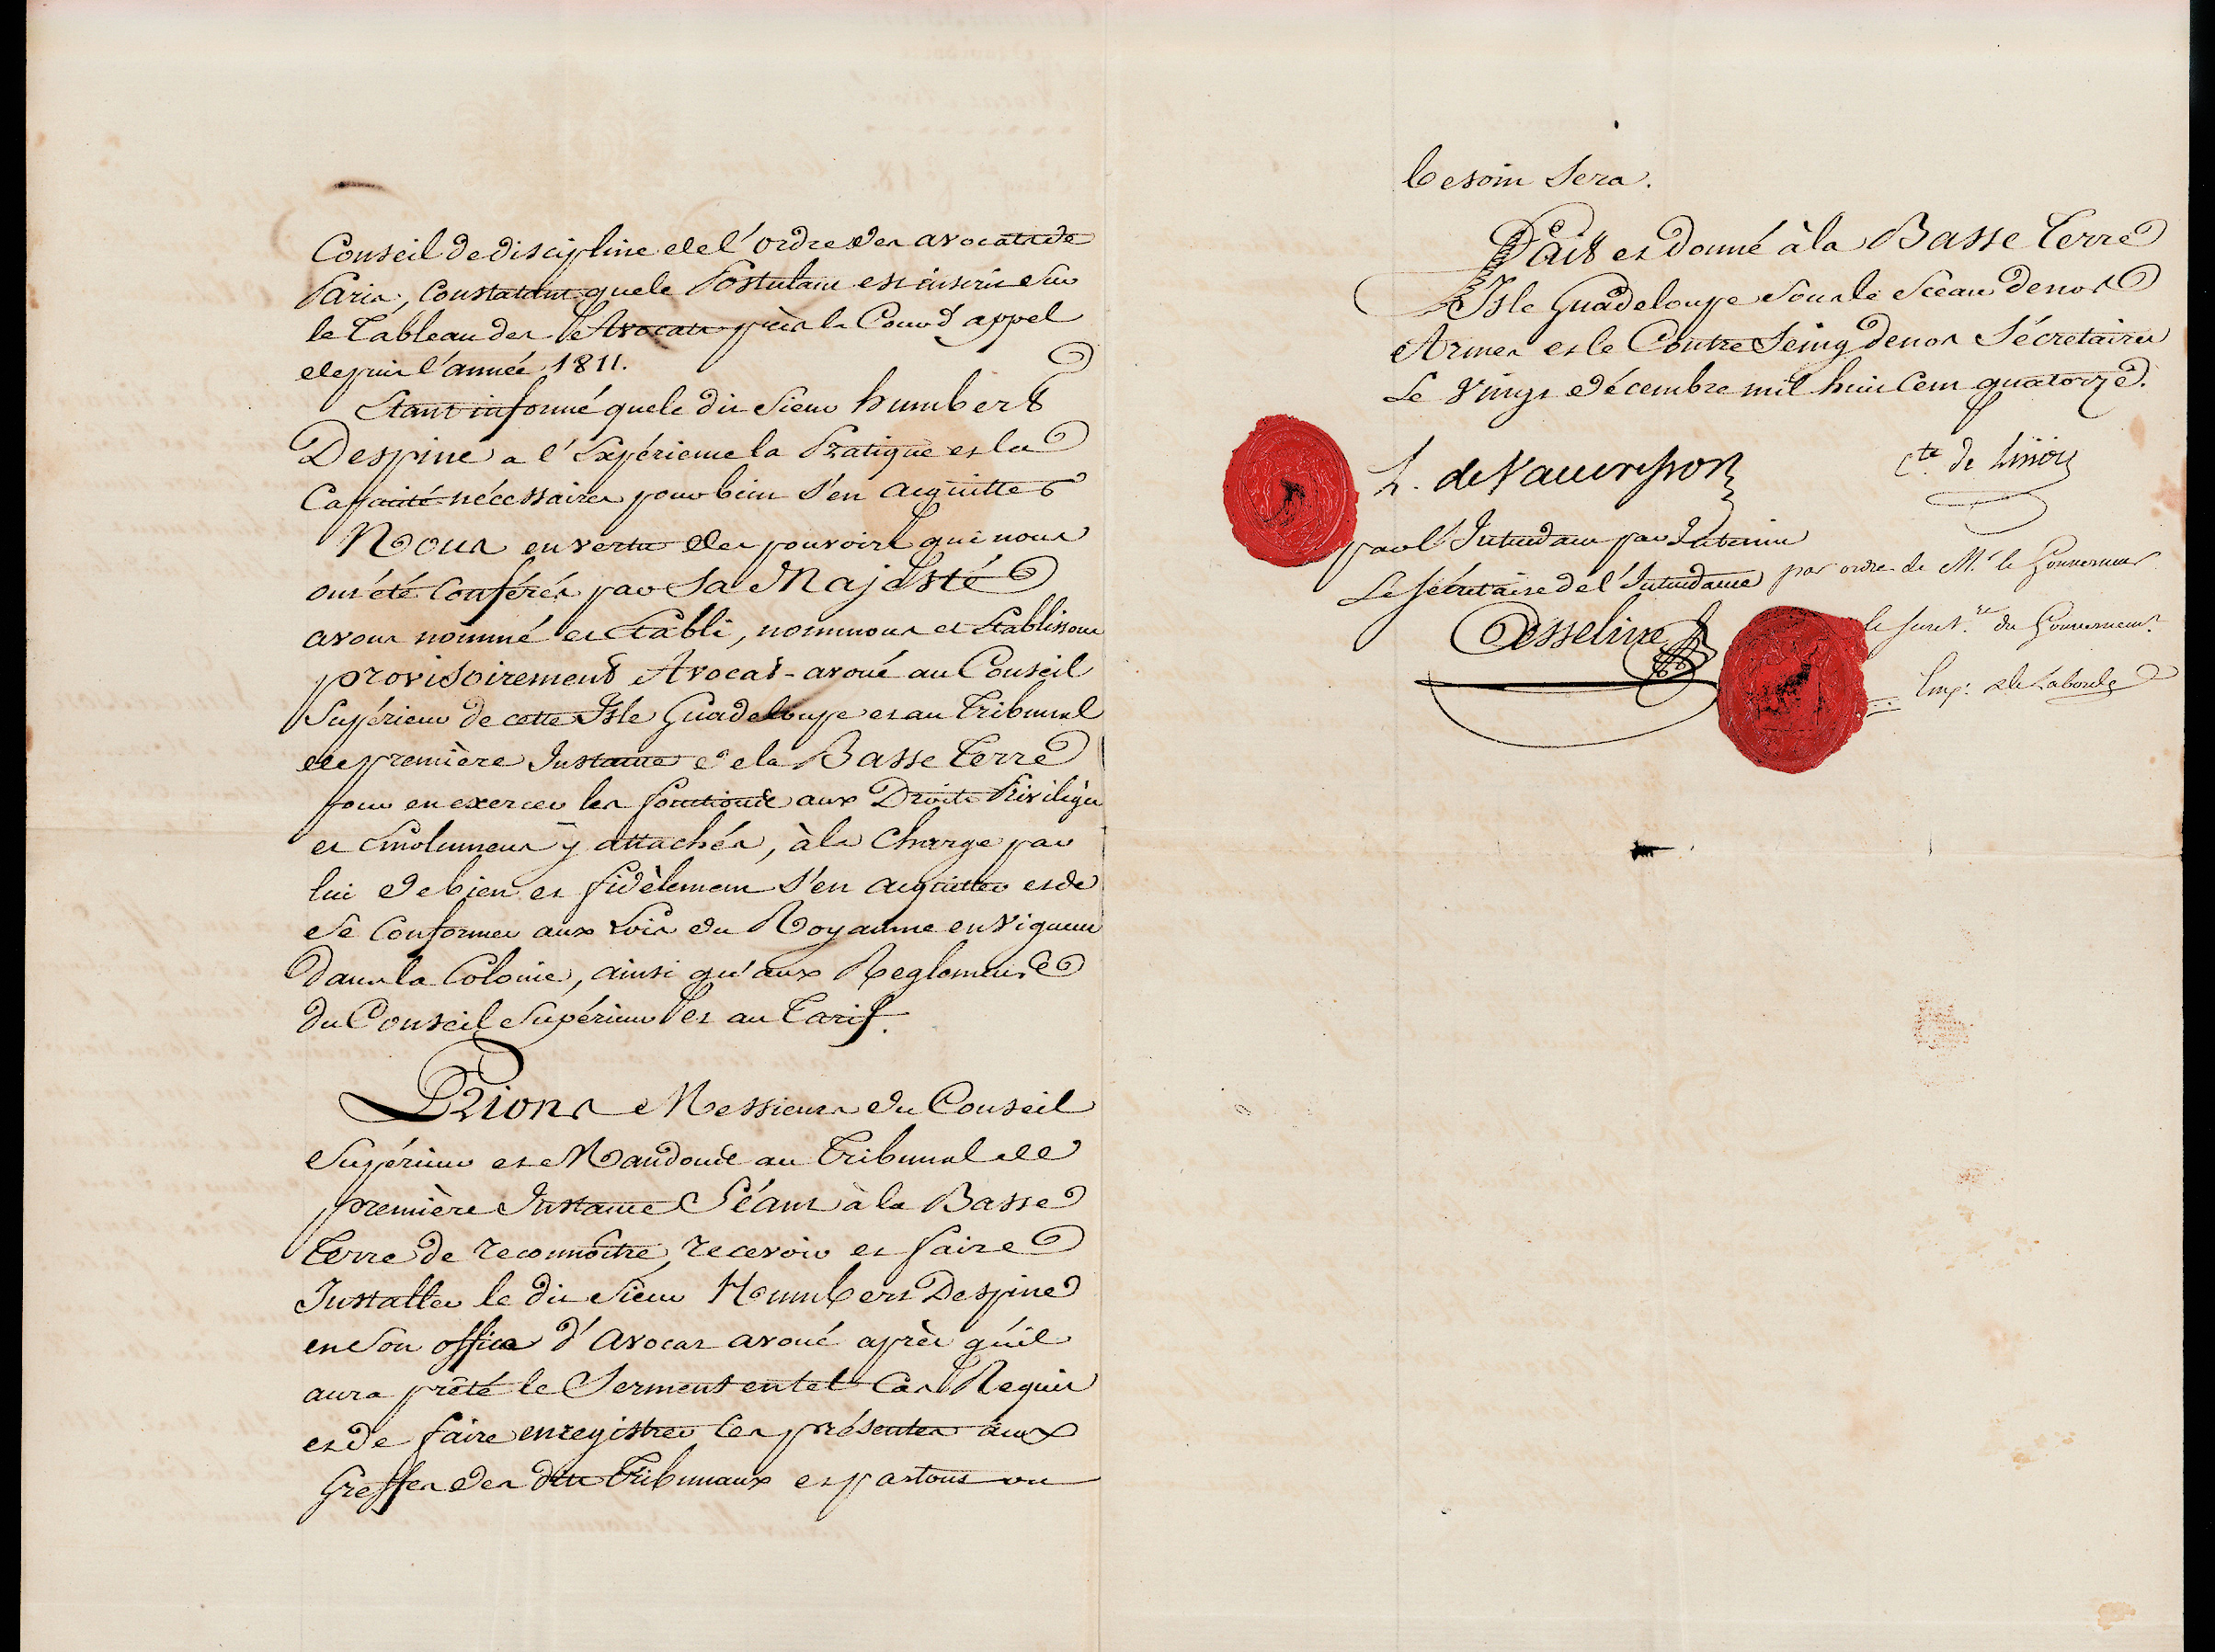 Conseil de discipline de l'ordre des avocats de
Paris, Constatant que le Postulant est inscrit sur
le Tableau des Avocats près la Cour d'appel
depuis l'année 1811.
Etant informé que le dit Sieur humbert
Despine a l'Expérience la Pratique et la
Capacité nécessaires pour bien s'en acquitter
Nous en vertu des pouvoirs qui nous
ont été Conférés par Sa Majesté
avons nommé et Etabli, nommons et Etablissons
provisoirement Avocat-avoué au Conseil
Supérieur de cette Isle Guadeloupe et au Tribunal
de première Instance de la Basse Terre
pour en exercer les fonctions aux Droits Privilèges
et Emolumens y attachés, à la Charge par
lui de bien et fidèlement s'en acquitter et de
Se Conformer aux Loix du Royaume en Vigueur
dans la Colonie, ainsi qu'aux Reglemens
du Conseil Supérieur et au Tarif.
Prions Messieurs du Conseil
Supérieur et Mandons au Tribunal de
première Instance Séant à la Basse
Terre de reconnoître, recevoir et faire
Installer le dit Sieur Humbert Despine
en Son office d'avocat avoué après qu'il
aura prêté le Serment en tel Cas Requis
et de faire enregistrer les présentes aux
Greffes des dits Tribunaux et partout ou
besoin Sera.
Fait et donné à la Basse Terre
Isle Guadeloupe Sous le Sceau de nos
Armes et le Contre Seing de nos Sécretaires
Le Vingt Décembre mil huit Cent quatorze.
h. de Vaucresson
Cte. de Linois
par l'Intendant par Interim
Le Sécretaire de l'Intendance
par ordre de Mr. le Gouverneur
Desseline
le Secret.re du Gouvernemt.
de Laborde